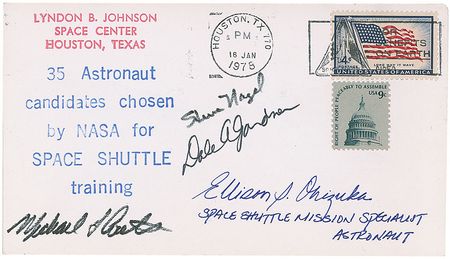 LYNDON B. JOHNSON
SPACE CENTER
HOUSTON, TEXAS
35 Astronaut
candidates chosen
by NASA for
SPACE SHUTTLE
training
HOUSTON, TX 770
PM
16 JAN
1978
4¢
LONG MAY IT WAVE
UNITED STATES OF AMERICA
OF PEOPLE PEACEABLY TO ASSEMBLE
USA 9c
Steve Nagel
Dale A Gardner
Ellison S. Onizuka
SPACE SHUTTLE MISSION SPECIALIST
ASTRONAUT
Michael L Coats